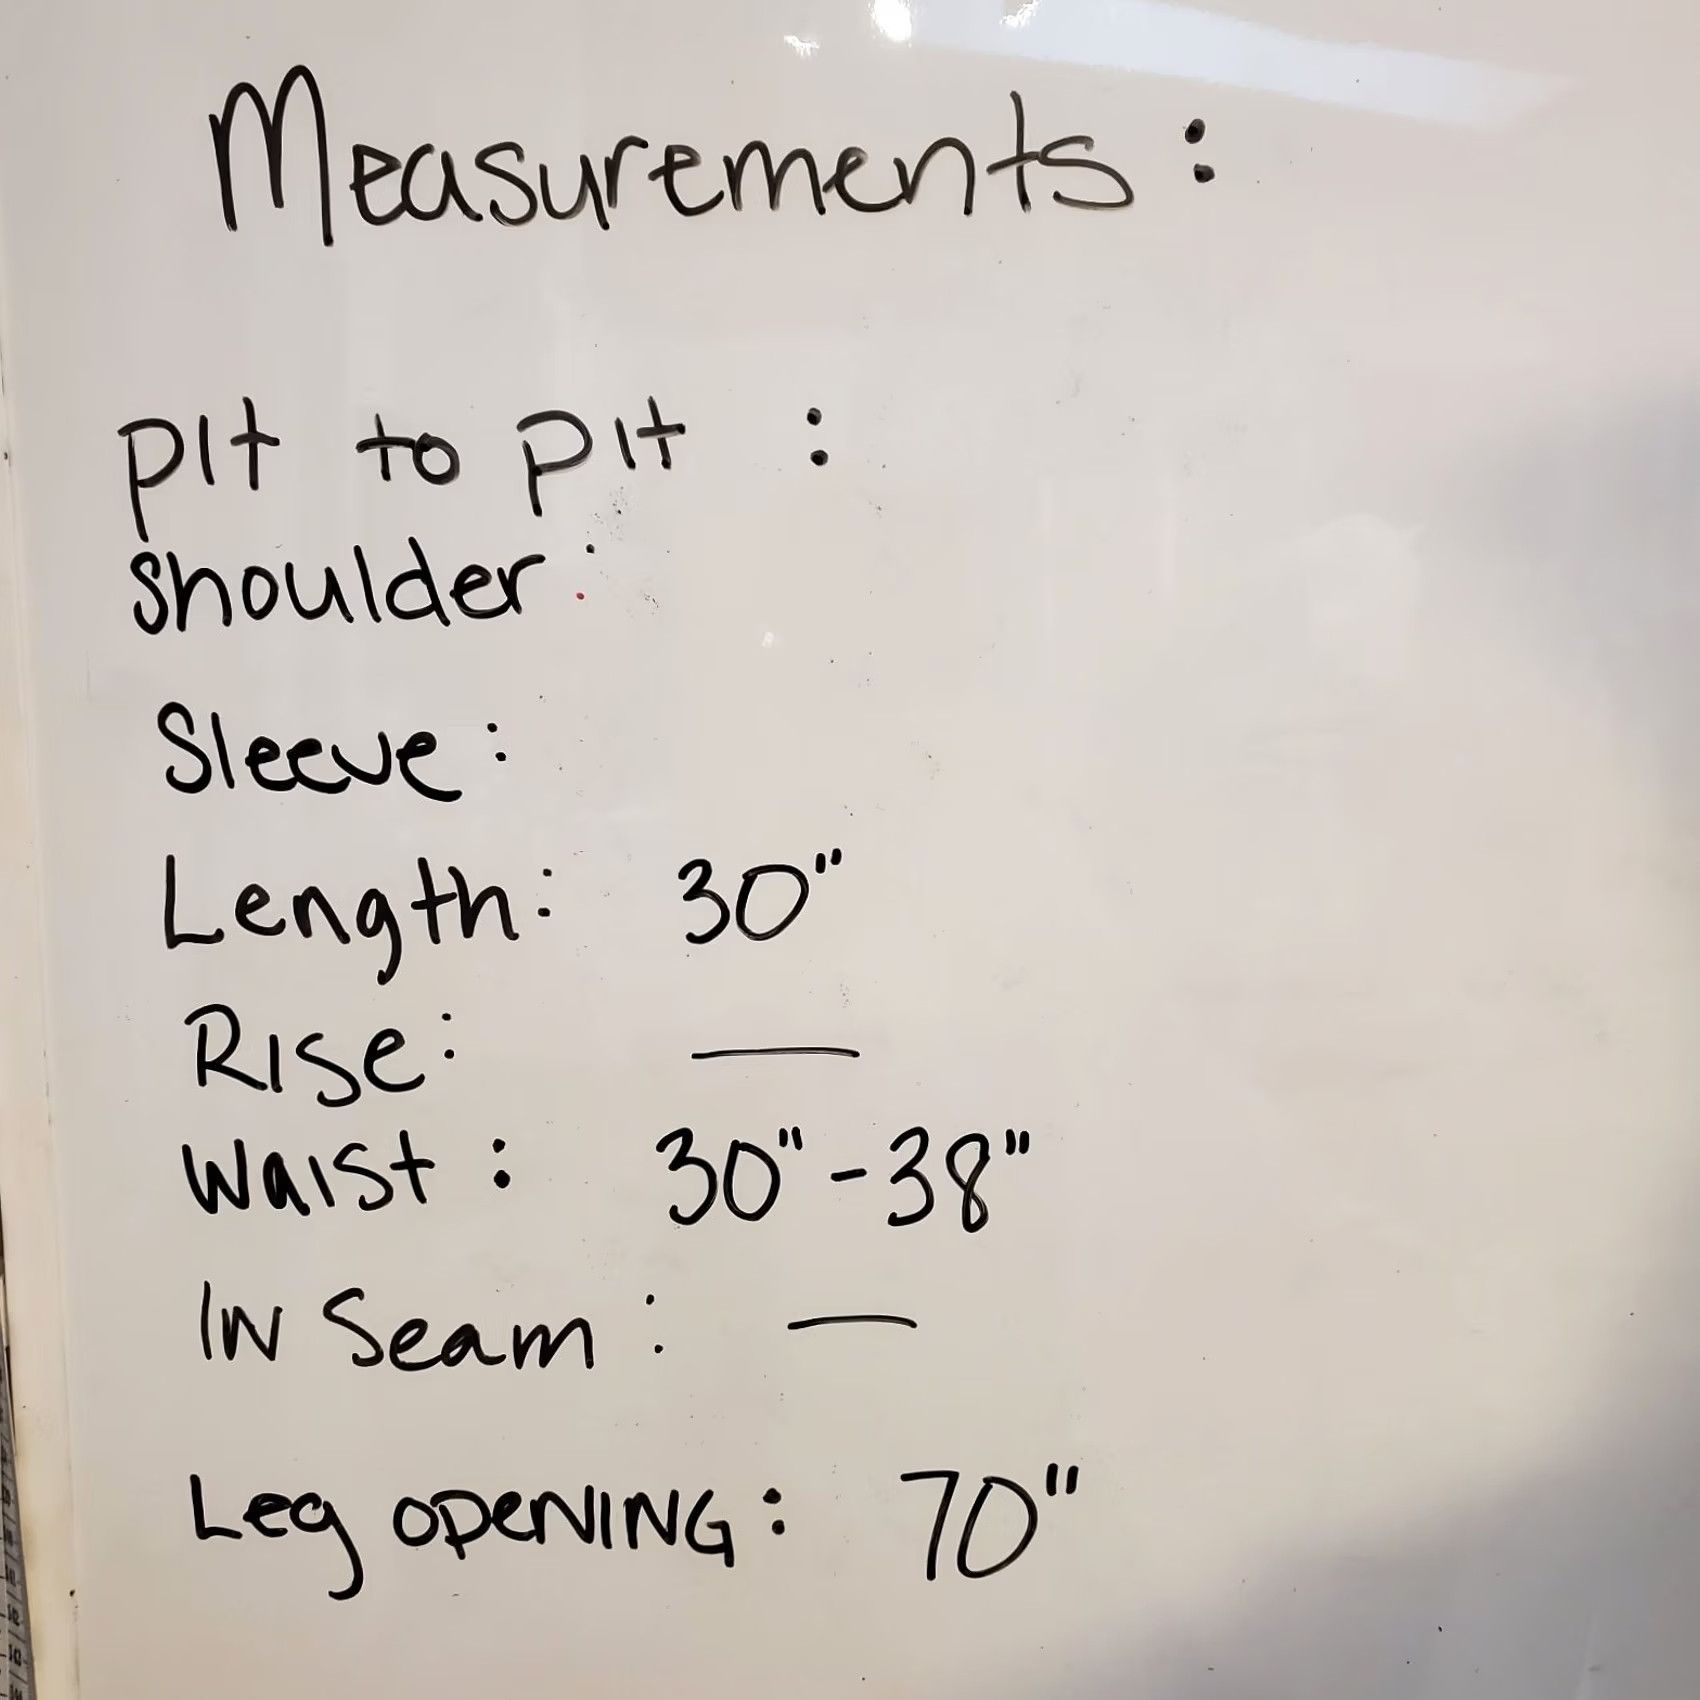 Measurements:
pit to pit :
shoulder:
Sleeve:
Length: 30"
Rise: —
Waist: 30"-38"
In Seam: —
Leg opening: 70"